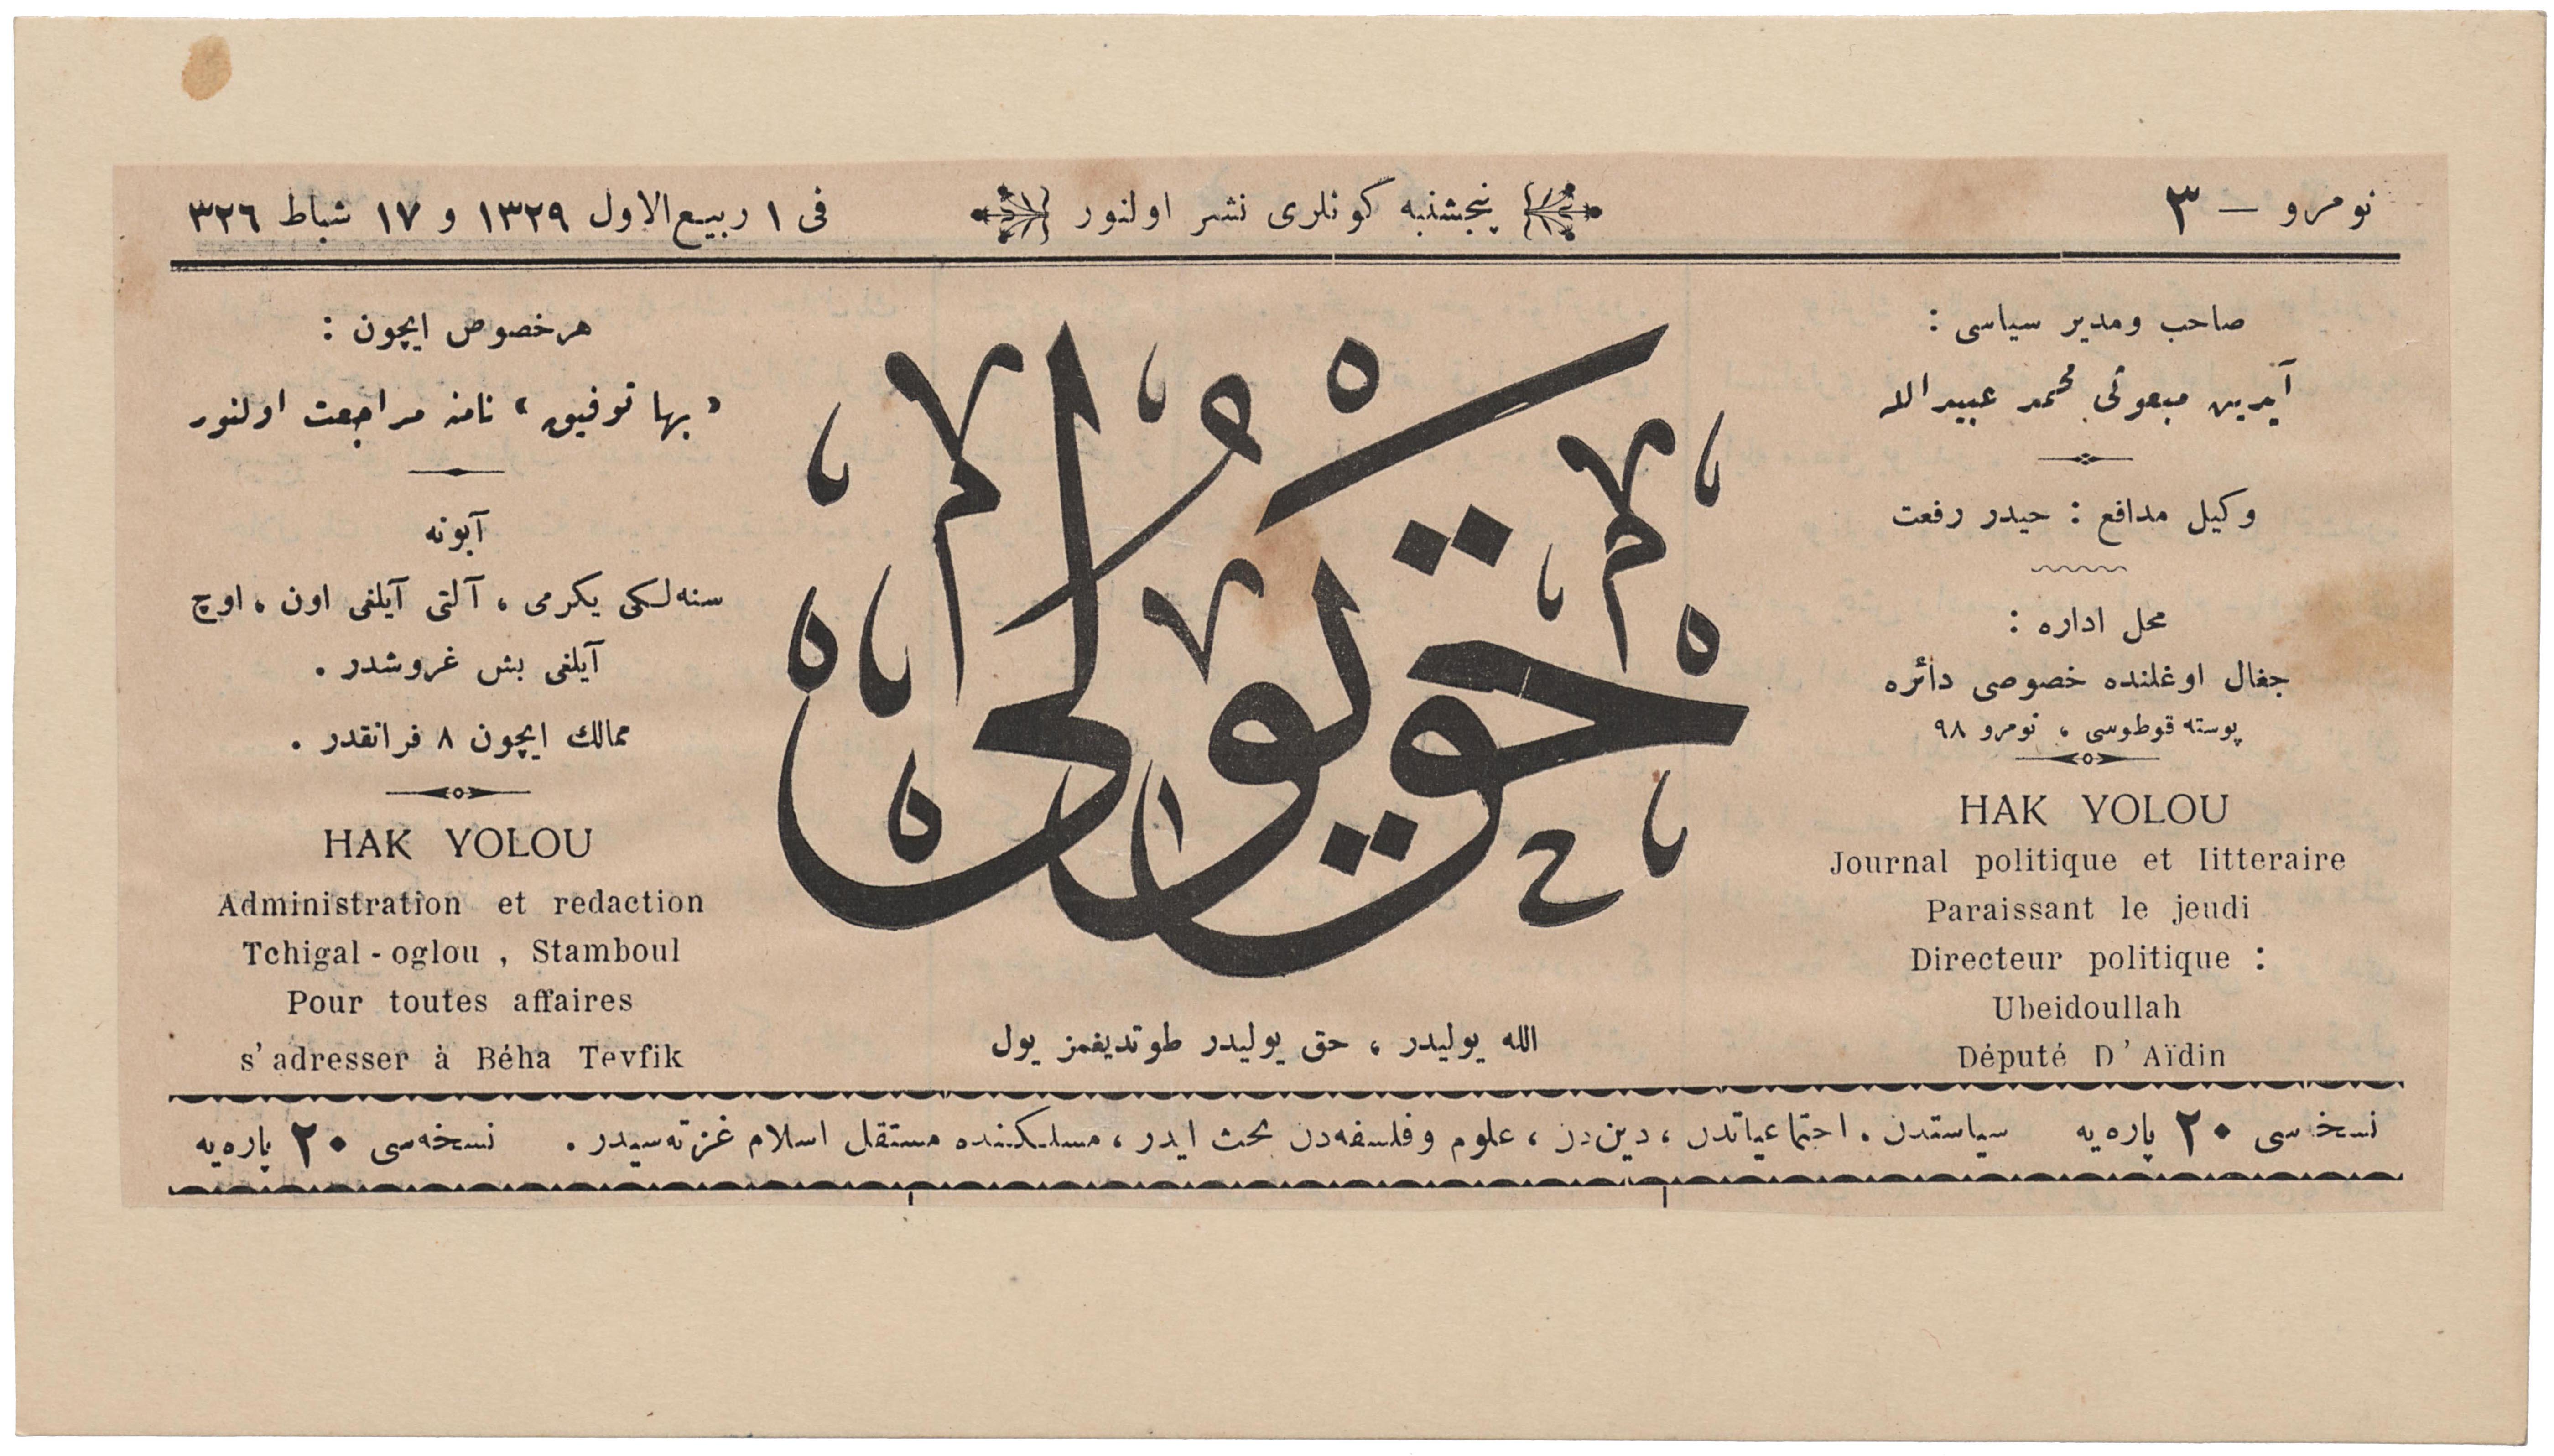 نومرو — ٣
پنجشنبه كونلری نشر اولنور
فی ١ ربيع‌الاول ١٣٢٩ و ١٧ شباط ٣٢٦
صاحب ومدير سياسی :
آيدين مبعوثی محمد عبيدالله
وكيل مدافع : حيدر رفعت
محل اداره :
جغال اوغلنده خصوصی دائره
پوسته قوطوسی ، نومرو ٩٨
HAK YOLOU
Journal politique et litteraire
Paraissant le jeudi
Directeur politique :
Ubeidoullah
Député D' Aïdin
حق يولی
الله يوليدر ، حق يوليدر طوتديغمز يول
هرخصوص ايچون :
«بها توفيق» نامنه مراجعت اولنور
آبونه
سنه‌لكی يكرمی ، آلتی آيلغی اون ، اوچ
آيلغی بش غروشدر .
ممالك ايچون ٨ فرانقدر .
HAK YOLOU
Administration et redaction
Tchigal - oglou , Stamboul
Pour toutes affaires
s' adresser à Béha Tevfik
نسخه‌سی ٢٠ پاره‌يه
سياستدن ، اجتماعياتدن ، دين‌دن ، علوم وفلسفه‌دن بحث ايدر ، مسلكنده مستقل اسلام غزته‌سيدر .
نسخه‌سی ٢٠ پاره‌يه